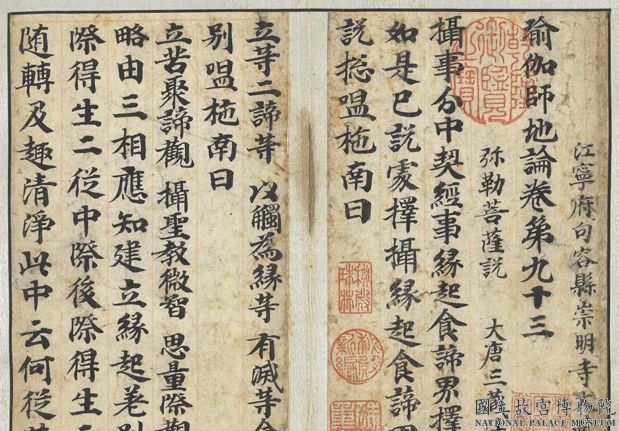 江寧府句容縣崇明寺
瑜伽師地論卷第九十三
弥勒菩薩説 大唐三藏
攝事分中契經事緣起食諦界擇
如是已說處擇攝緣起食諦
説揔嗢柁南曰
立苐二諦䒭 以觸為緣䒭 有滅䒭
別嗢柁南曰
立苦聚諦觀 攝聖教微智 思量際觀
略由三相應知建立緣起差別
際得生二從中際後際得生三
随轉及趣清淨此中云何從
國立故宮博物院
NATIONAL PALACE MUSEUM